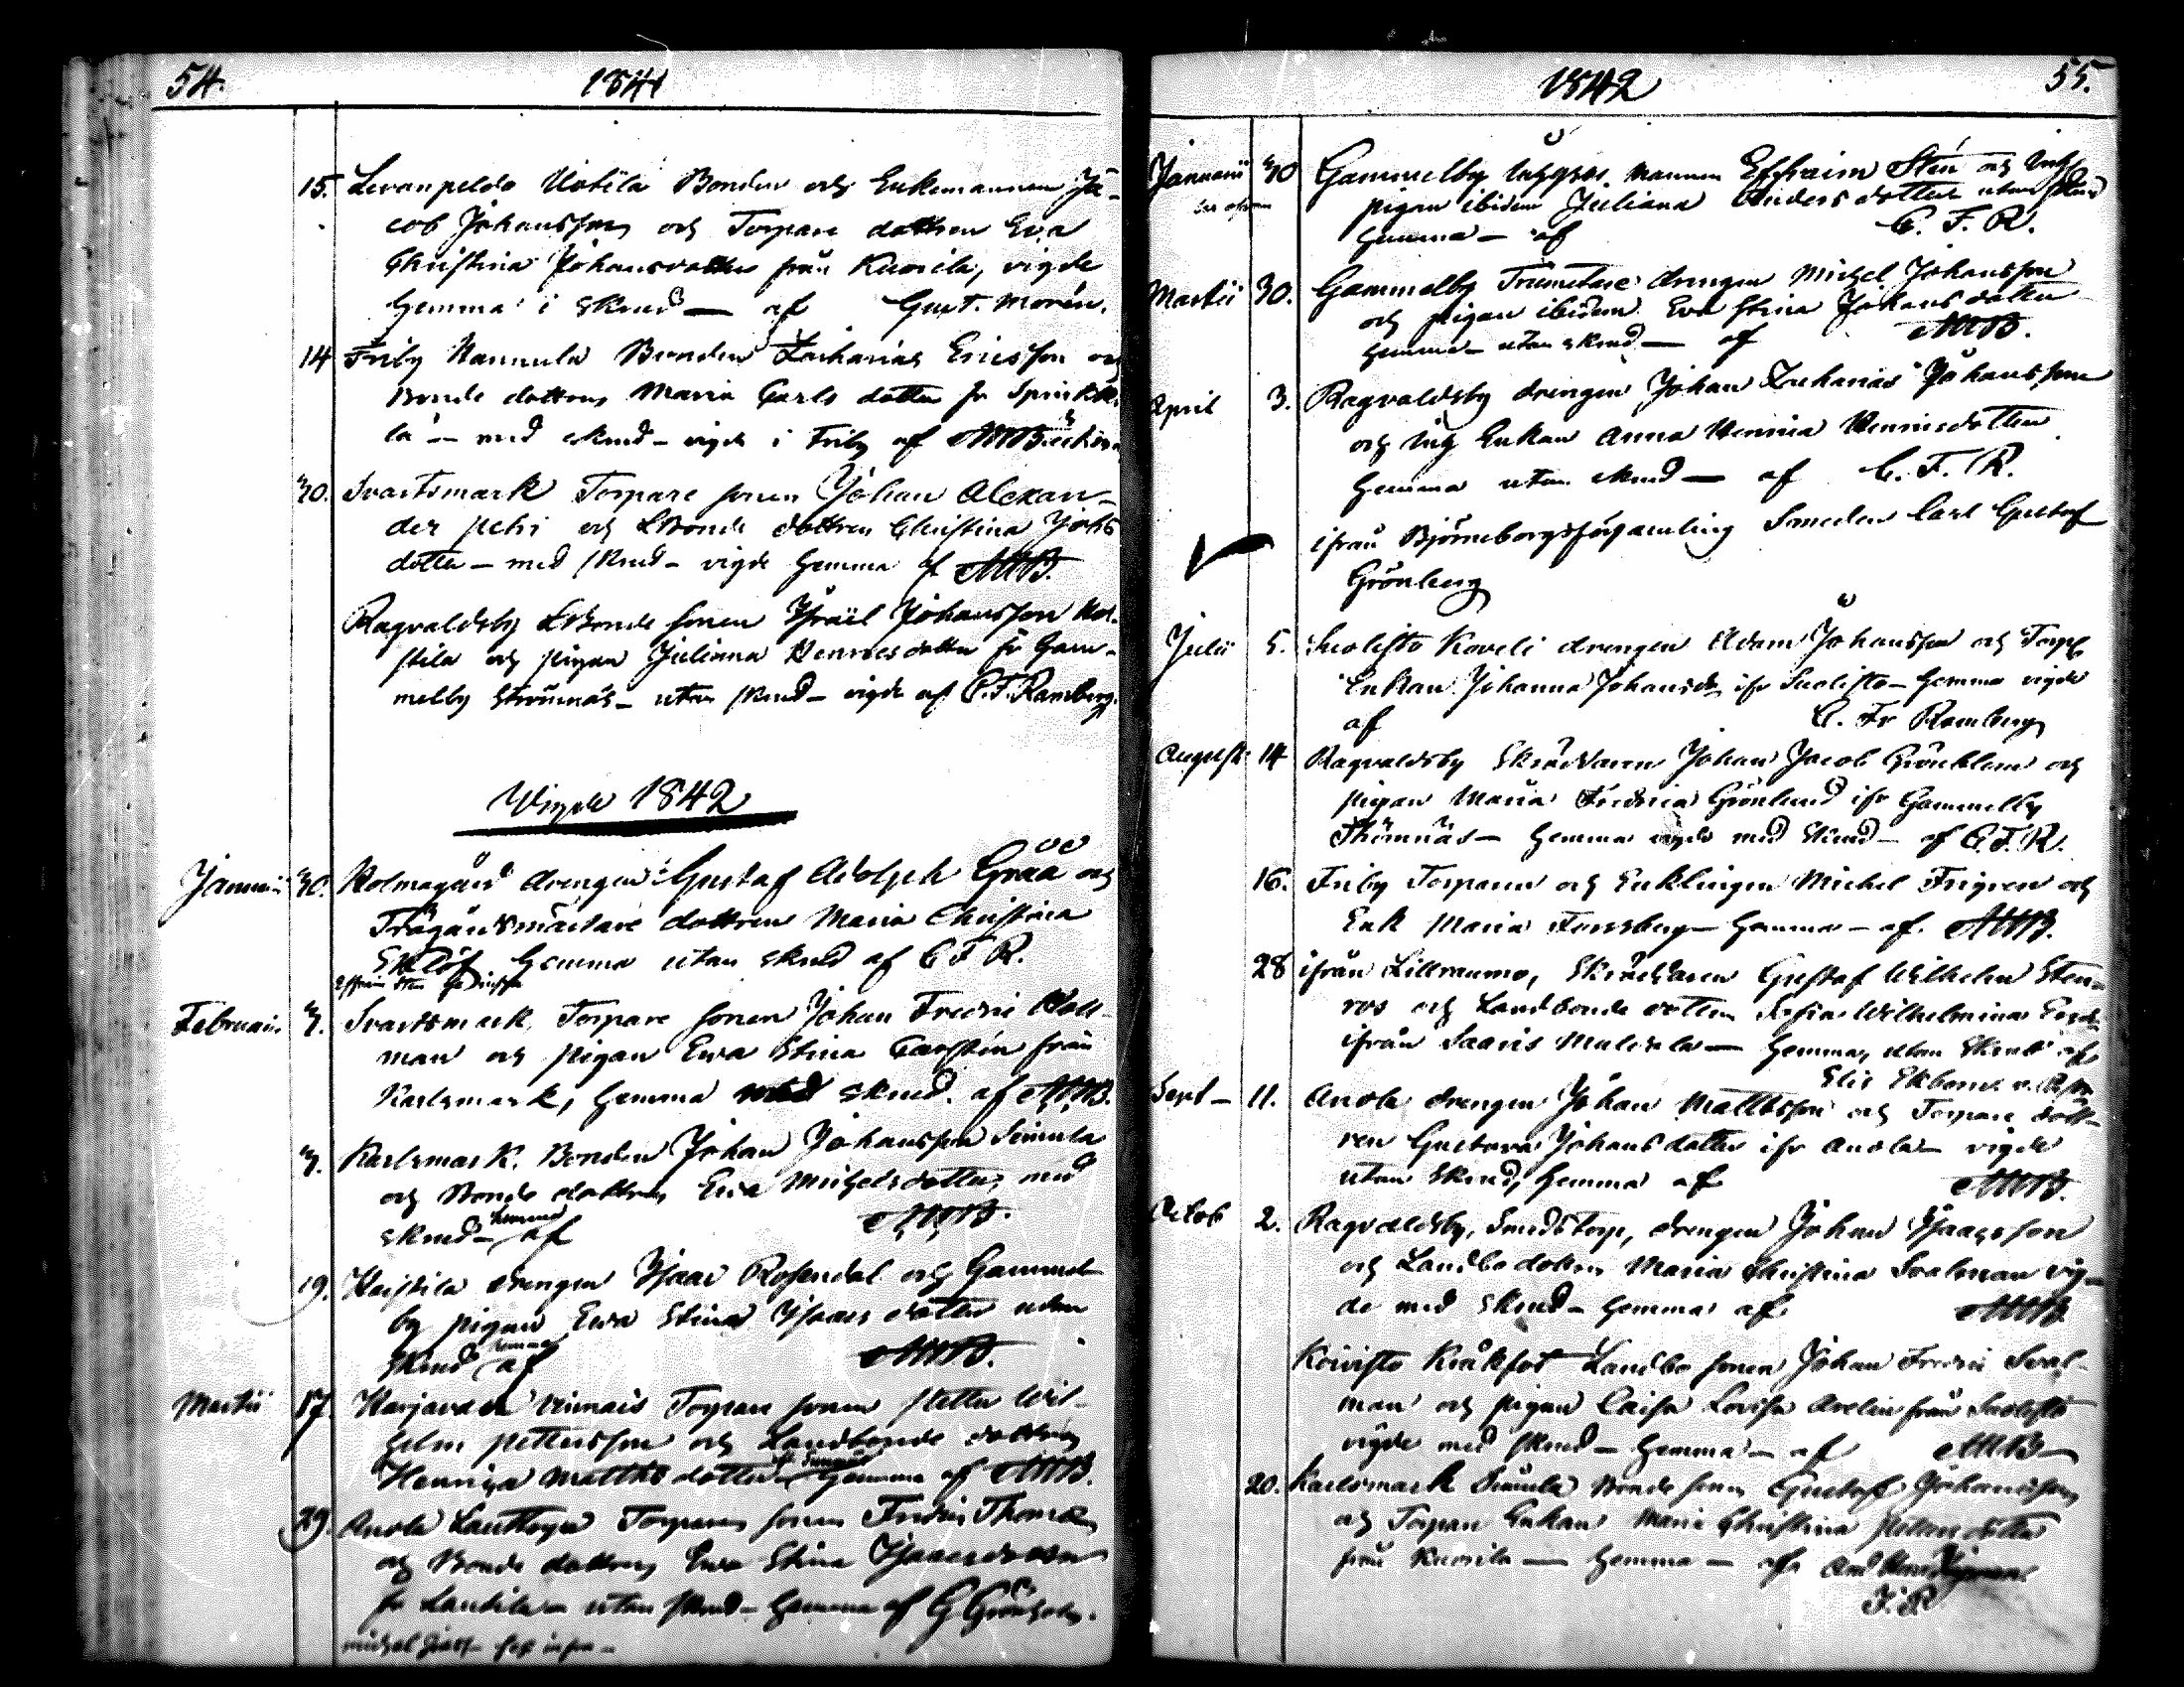 54. 1841
15. Levanpeldo Uotila Bonden och Enkemannen Ja-
cob Johansson och Torpare dottren Eva
Christina Johansdotter från Kuorila, vigde
hemma i skrud — af Gust. Morén.
14 Friby Nannula Bonden Zacharias Ericsson och
Bonde dottren Maria Carls dotter fr
la — med skrud — vigde i Friby af
30. Svartsmark Torpare sonen Johan Alexan-
der Petri och LBonde dottren Christina Johs
dotter — med skrud — vigde hemma af AWB.
Ragvaldsby LBonde sonen Israël Johansson
och pigan Juliana Hennricsdotter fr Gam-
melby Strömnäs — utan skrud — vigde af C.F. Ramberg.
Vigde 1842
Januarii 30. Holmagård drengen Gustaf Adolph Gråå och
Trägårdsmästare dottren Maria Christina
Eklöf hemma utan skrud af C F R.
Februarii 3. Svartsmark, Torpare sonen Johan Fredric
man och pigan Ewa Stina från
Karlsmark, hemma med skrud. af AWB.
3. Karlsmark. Bonden Johan Johansson Simula
och Bonde dottren Ewa Michelsdotter, med
skrud — hemma af AWB.
19. Haistila drengen Isaac Rosendal och Gammel
by pigan Ewa Stina Isaacs dotter utan
skrud hemma af AWB.
Martii 17. Harjavalta Torpare sonen Wil-
helm Pettersson och Landbonde dottren
Henrica Matths dotter hemma af AWB.
29. Anola Torpare sonen Fredric
och Bonde dottren Ewa Stina
fr — utan skrud — hemma af G Grönholm.
1842 55.
Januarii 30 Gammelby Effraim Stén och
pigan ibidem Juliana Anders dotter utan skrud
hemma — af C. F. R.
Martii 30. Gammelby drengen Michel Johansson
och pigan ibidem Eva Stina Johans dotter
hemma — utan skrud — af AWB.
April 3. Ragvaldsby drengen Johan Zacharias Johansson
och Enkan Anna
hemma utan skrud — af C. F. R.
ifrån Björneborgs församling Smeden Carl Gustaf
Grönberg
Julii 5. Suolisto Koveli drengen Adam Johansson och Torp
Enkan Johanna Johansdr ifr Suolisto — hemma vigde
af C. Fr Ramberg
Augusti 14 Ragvaldsby Skräddaren Johan Jacob och
pigan Maria Fredrica Grönlund ifr Gammelby
Strömnäs — hemma vigde med skrud — af C.F.R.
16. Friby Torparen och Enklingen Michel och
Enk Maria Forssberg — hemma — af. AWB.
28 ifrån Lillraumo, Skräddaren Gustaf Wilhelm Sten-
ros och Landbonde dottren Sofia Wilhelmina
ifrån — hemma, utan skrud af
Sept — 11. Anola drengen Johan Matthsson och Torpare dott-
ren Gustava Johans dotter ifr Anola — vigde
utan skrud, hemma af AWB.
Octob 2. Ragvaldsby, Sundstorp, drengen Johan Isaacsson
och Landbo dottren Maria Christina Sualman vig-
de med skrud — hemma af AWB
Koivisto Kråkfot Landbo sonen Johan Fredric Sual-
man och pigan Caisa Lovisa från Suolisto
vigde med skrud — hemma — af AWB —
20. Karlsmark Simula Bonde sonen Gustaf Johansson
och Torpare Enkan Maria Christina Petters dotter
från Kuorila — hemma — af